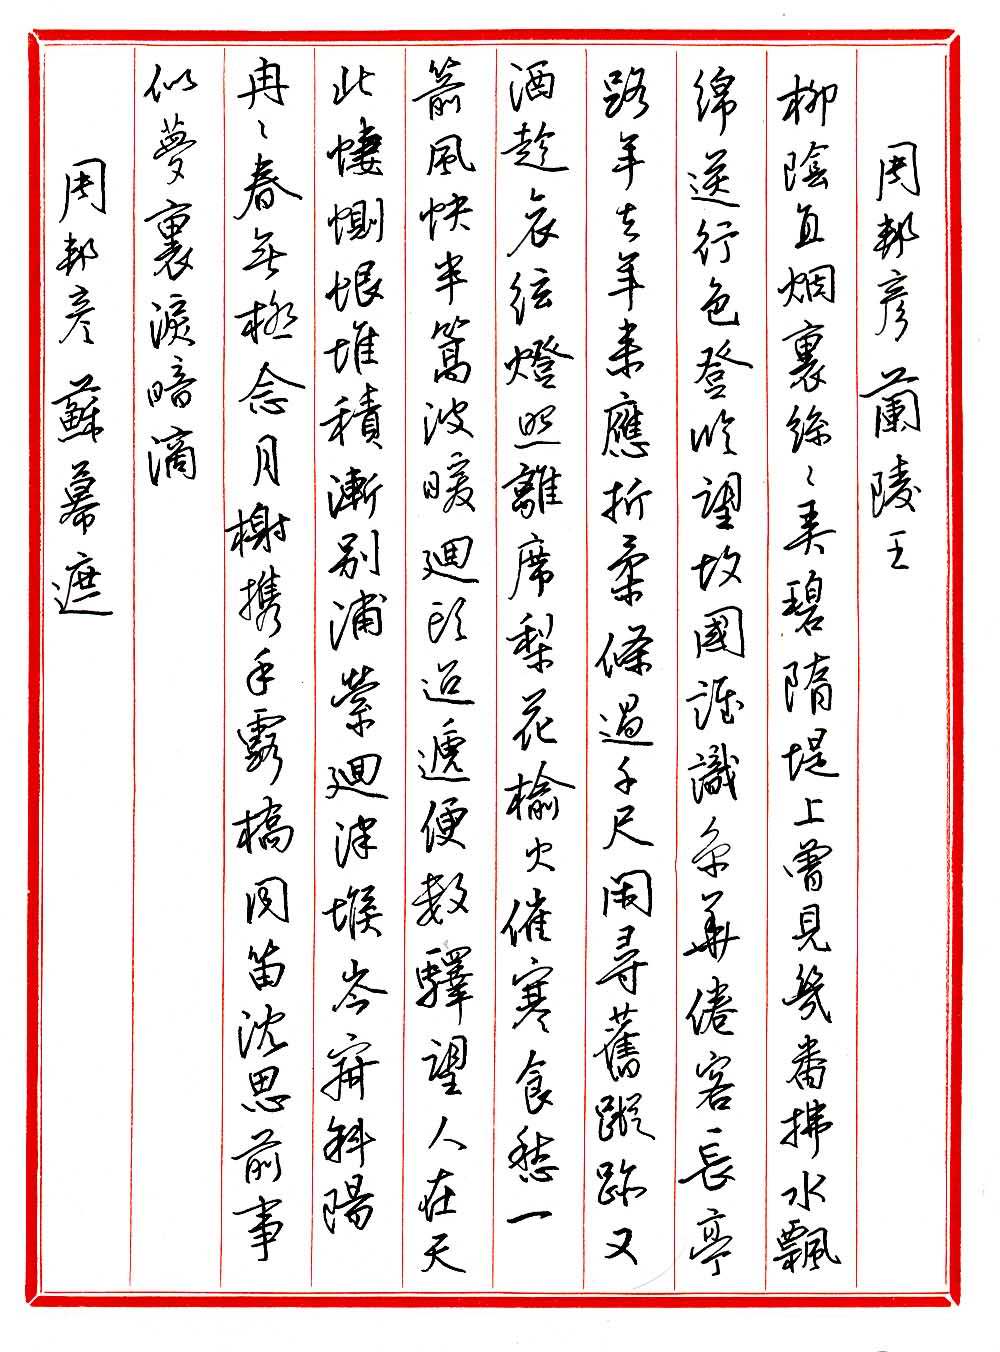 周邦彥 蘭陵王
柳陰直烟裏絲〻弄碧隋堤上曾見幾番拂水飄
綿送行色登臨望故國誰識京華倦客長亭
路年去年來應折柔條過千尺閑尋舊蹤跡又
酒趁哀絃燈照離席梨花榆火催寒食愁一
箭風快半篙波暖迴頭迢遞便數驛望人在天
北悽惻恨堆積漸別浦縈迴津堠岑寂斜陽
冉〻春無極念月榭携手露橋聞笛沈思前事
似夢裏淚暗滴
周邦彥 蘇幕遮